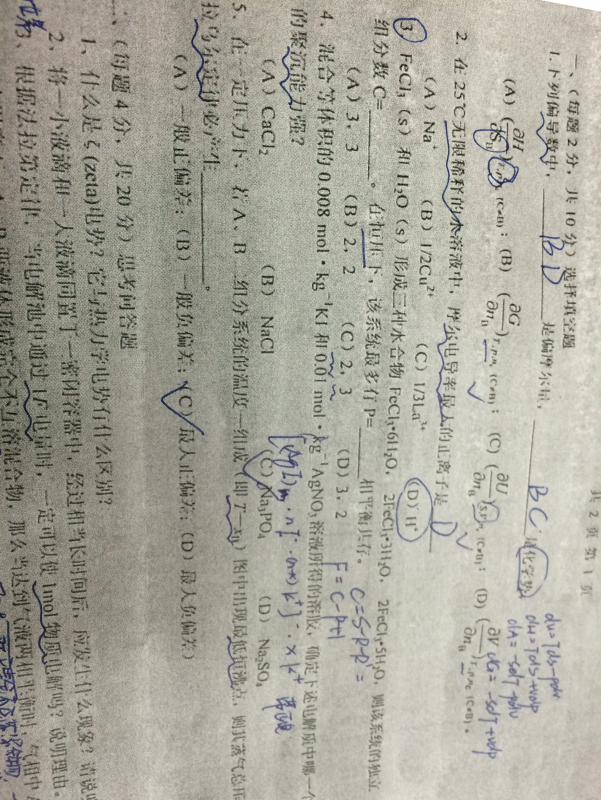 共 2 页 第 1 页
一、(每题 2 分，共 10 分) 选择填空题
1. 下列偏导数中，BD 是偏摩尔量，BC 是化学势
(A) (∂H/∂n_B)S,p,n_C (C≠B)；(B) (∂G/∂n_B)T,p,n_C (C≠B)；(C) (∂U/∂n_B)S,V,n_C (C≠B)；(D) (∂V/∂n_B)T,p,n_C (C≠B)。
du=Tds-pdv
dH=Tds+vdp
dA=-sdT-pdv
dG=-sdT+vdp
2. 在 25℃无限稀释的水溶液中，摩尔电导率最大的正离子是 D
(A) Na⁺ (B) 1/2Cu²⁺ (C) 1/3La³⁺ (D) H⁺
3 FeCl₃ (s) 和 H₂O (s) 形成三种水合物 FeCl₃•6H₂O，2FeCl₃•3H₂O，2FeCl₃•5H₂O，则该系统的独立
组分数 C=____。在恒压下，该系统最多有 P=____相平衡共存。
C=S-R-R'=
(A) 3，3 (B) 2，2 (C) 2，3 (D) 3，2
F=C-P+1
4、混合等体积的 0.008 mol·kg⁻¹KI 和 0.01 mol·kg⁻¹AgNO₃ 溶液所得的溶胶，确定下述电解质中哪一个
的聚沉能力强?
(A) CaCl₂ (B) NaCl (C) Na₃PO₄ (D) Na₂SO₄
5、在一定压力下，若 A、B 二组分系统的温度—组成 (即 T—x_B) 图中出现最低恒沸点，则其蒸气总压
拉乌尔定律必产生____。
(A) 一般正偏差；(B) 一般负偏差；(C) 最大正偏差；(D) 最大负偏差)
二、(每题 4 分，共 20 分) 思考问答题
1、什么是 ζ (zeta)电势？它与热力学电势有什么区别?
2、将一小液滴和一大液滴同置于一密闭容器中，经过相当长时间后，应发生什么现象？请说明
3、根据法拉第定律，当电解池中通过 1F 电量时，一定可以使 1mol 物质电解吗？说明理由。
形成完全不互溶混合物，那么当达到气液两相平衡时，气相中